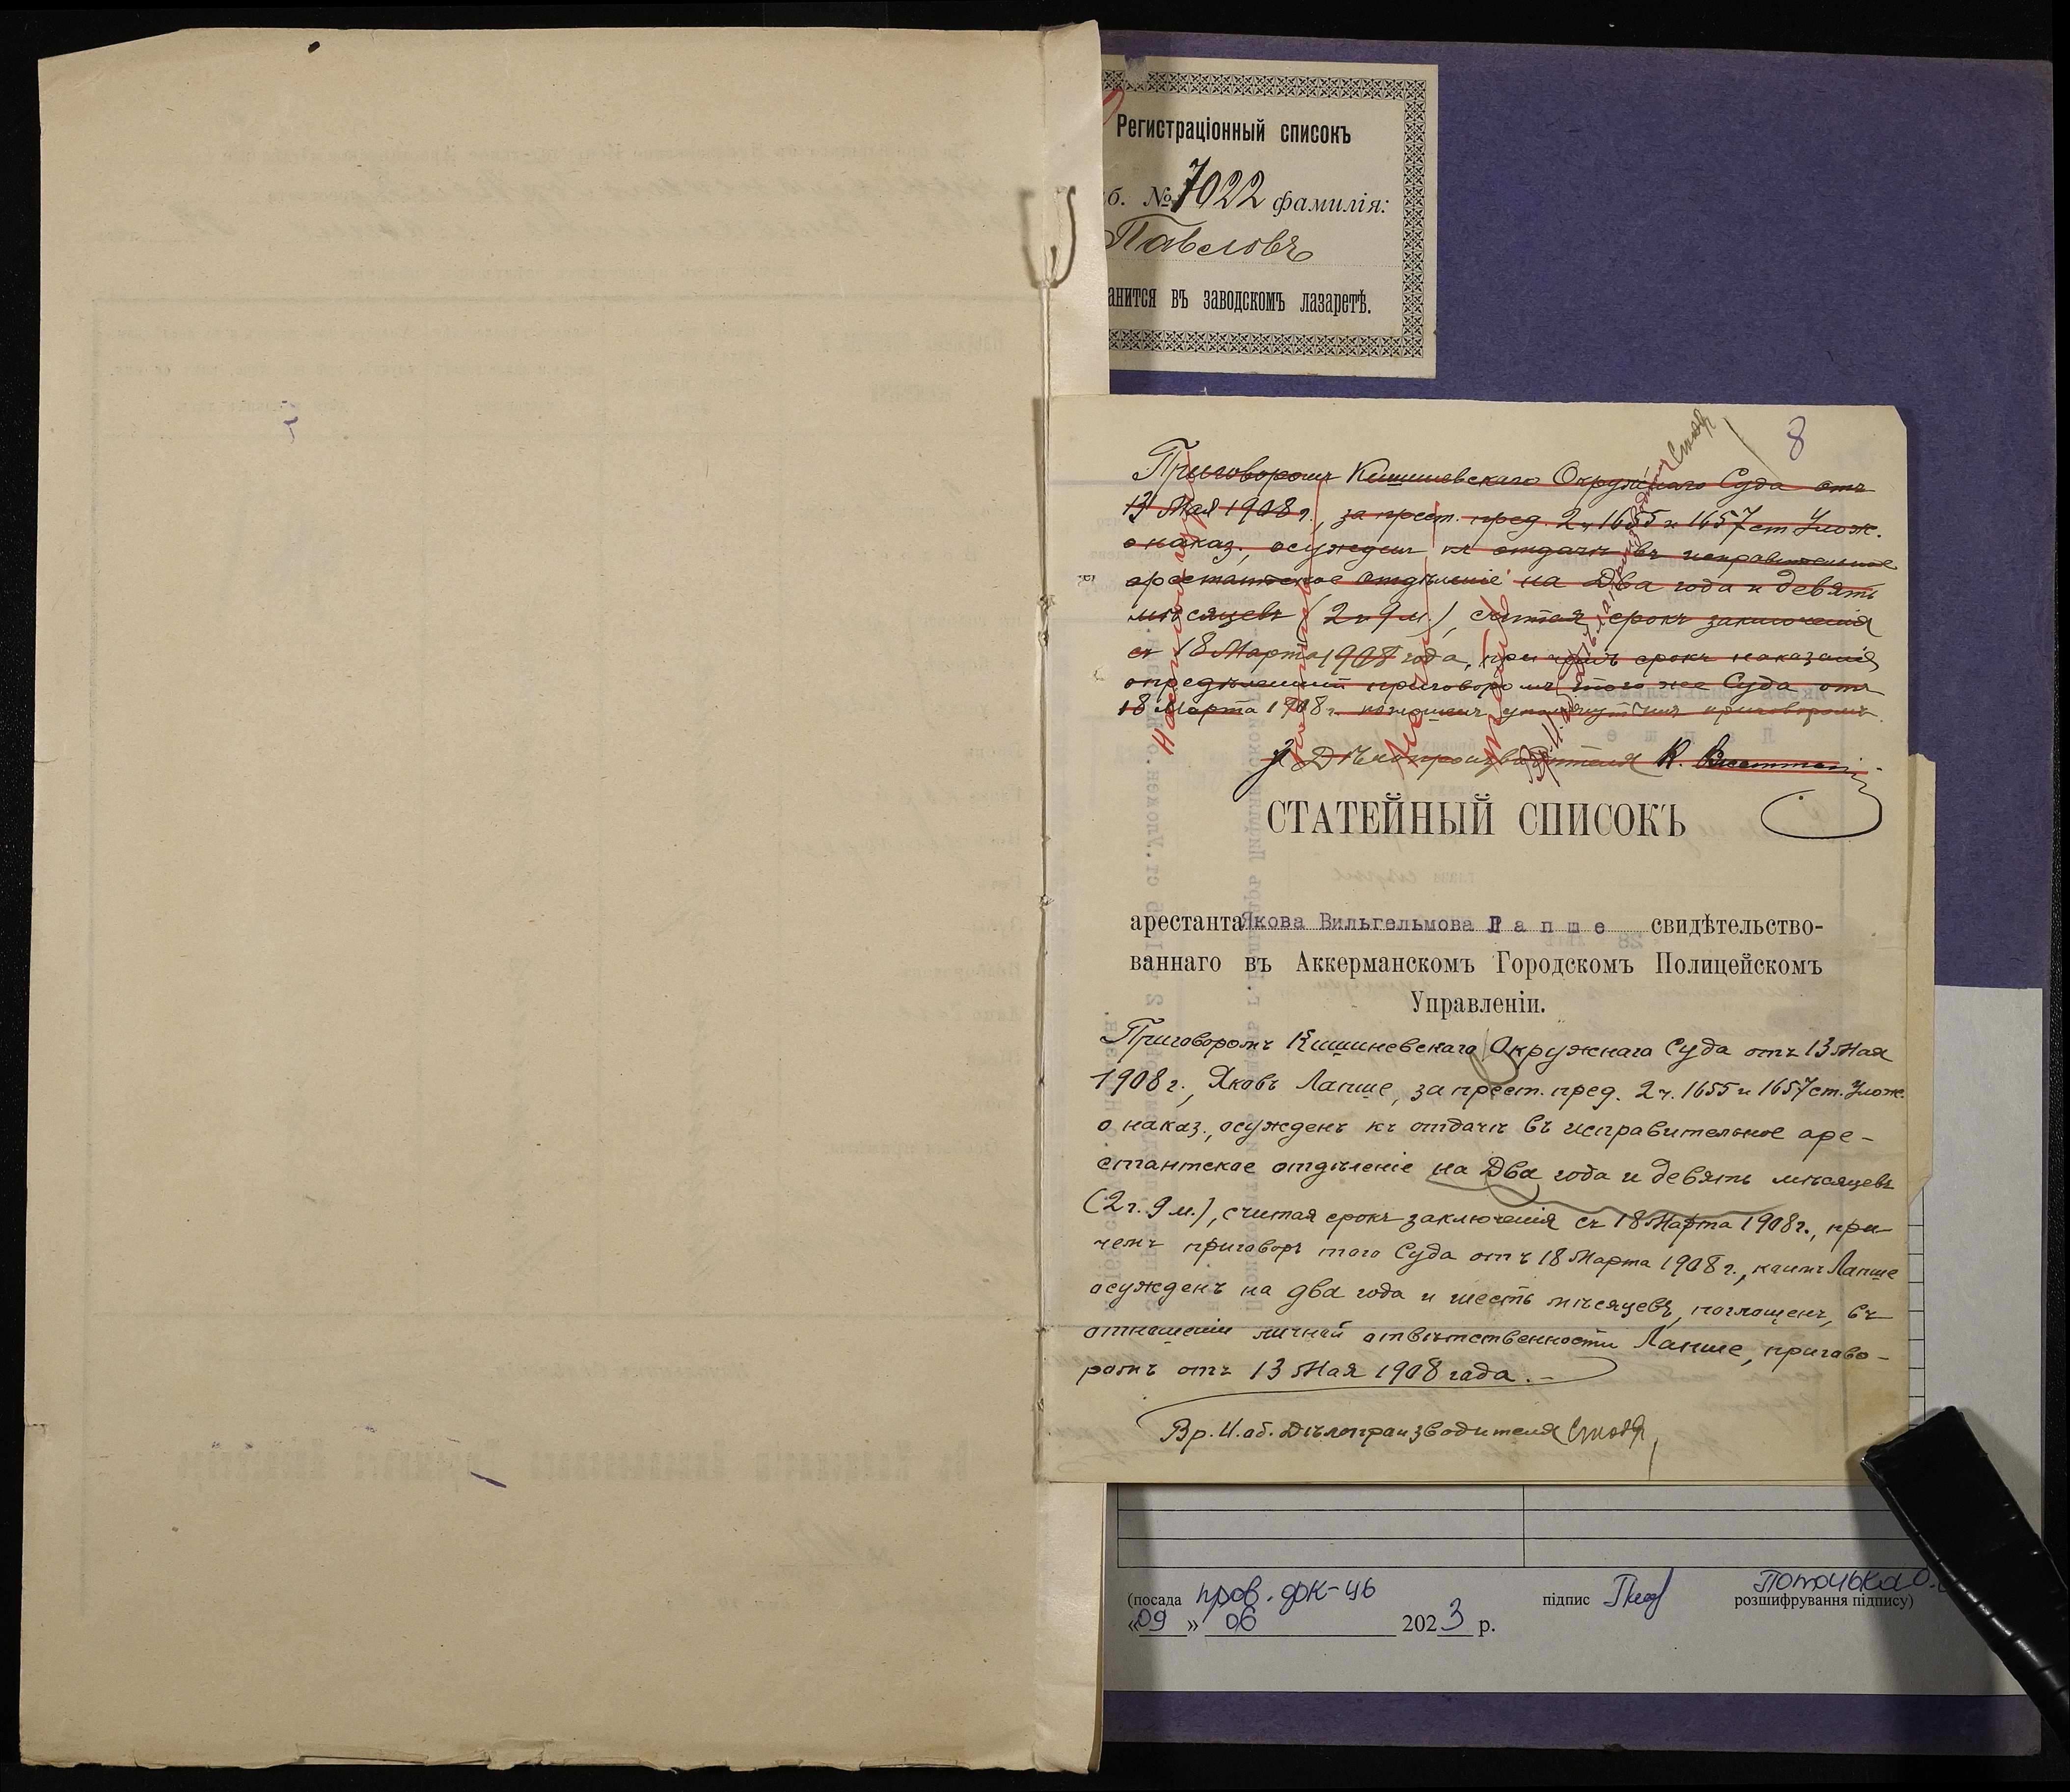 Регистраціонный списокъ
б. № 7022 фамилія:
Павловъ
анится въ заводскомъ лазаретѣ.
8
Приговоромъ Кишиневскаго Окружнаго Суда отъ
13 Мая 1908 г., за прест. пред. 2 ч 1655 и 1657 ст Улож.
о наказ., осужденъ къ отдачѣ въ исправительное
арестантское отдѣленіе на Два года и девять
мѣсяцевъ (2 г 9 м), считая срокъ заключенія
съ 18 Марта 1908 года, при чемъ срокъ наказанія
опредѣленный приговоромъ того же Суда отъ
18 Марта 1908 г. поглощенъ приговоромъ
Дѣлопроизводителя К.
СТАТЕЙНЫЙ СПИСОКЪ
арестанта Якова Вильгельмова Лапше свидѣтельство-
ваннаго въ Аккерманскомъ Городскомъ Полицейскомъ
Управленіи.
Приговоромъ Кишиневскаго Окружнаго Суда отъ 13 Мая
1908 г., Яковъ Лапше, за прест. пред. 2 ч. 1655 и 1657 ст. Улож.
о наказ., осужденъ къ отдачѣ въ исправительное аре-
стантское отдѣленіе на Два года и девять мѣсяцевъ
(2 г. 9 м.), считая срокъ заключенія съ 18 Марта 1908 г., при-
чемъ приговоръ того Суда отъ 18 Марта 1908 г., каимъ Лапше
осужденъ на два года и шесть мѣсяцевъ, поглощенъ, въ
отношеніи личной отвѣтственности Лапше, пригово-
ромъ отъ 13 Мая 1908 года.-
Вр. И. об. Дѣлопроизводителя
(посада пров. док-ив підпис розшифрування підпису)
«09» 06 2023 р.